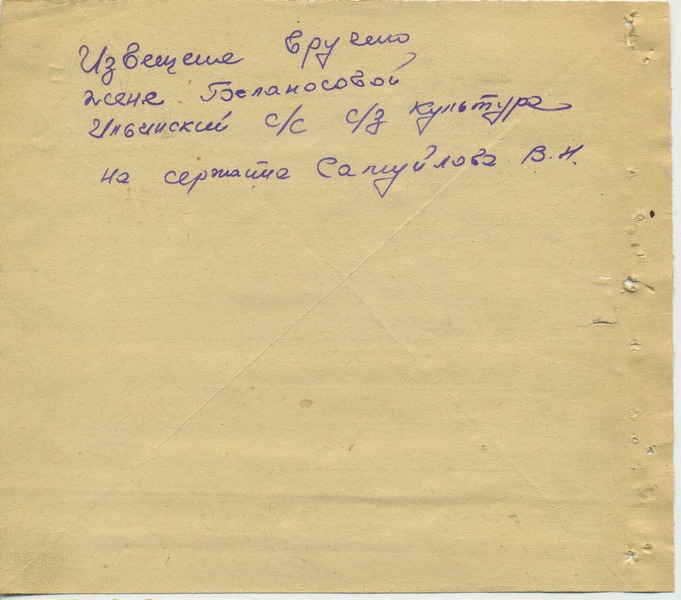 Извещение вручено
жене Белоносовой
Ильинский с/с с/з культура
на сержанта Самуйлова В. Н.